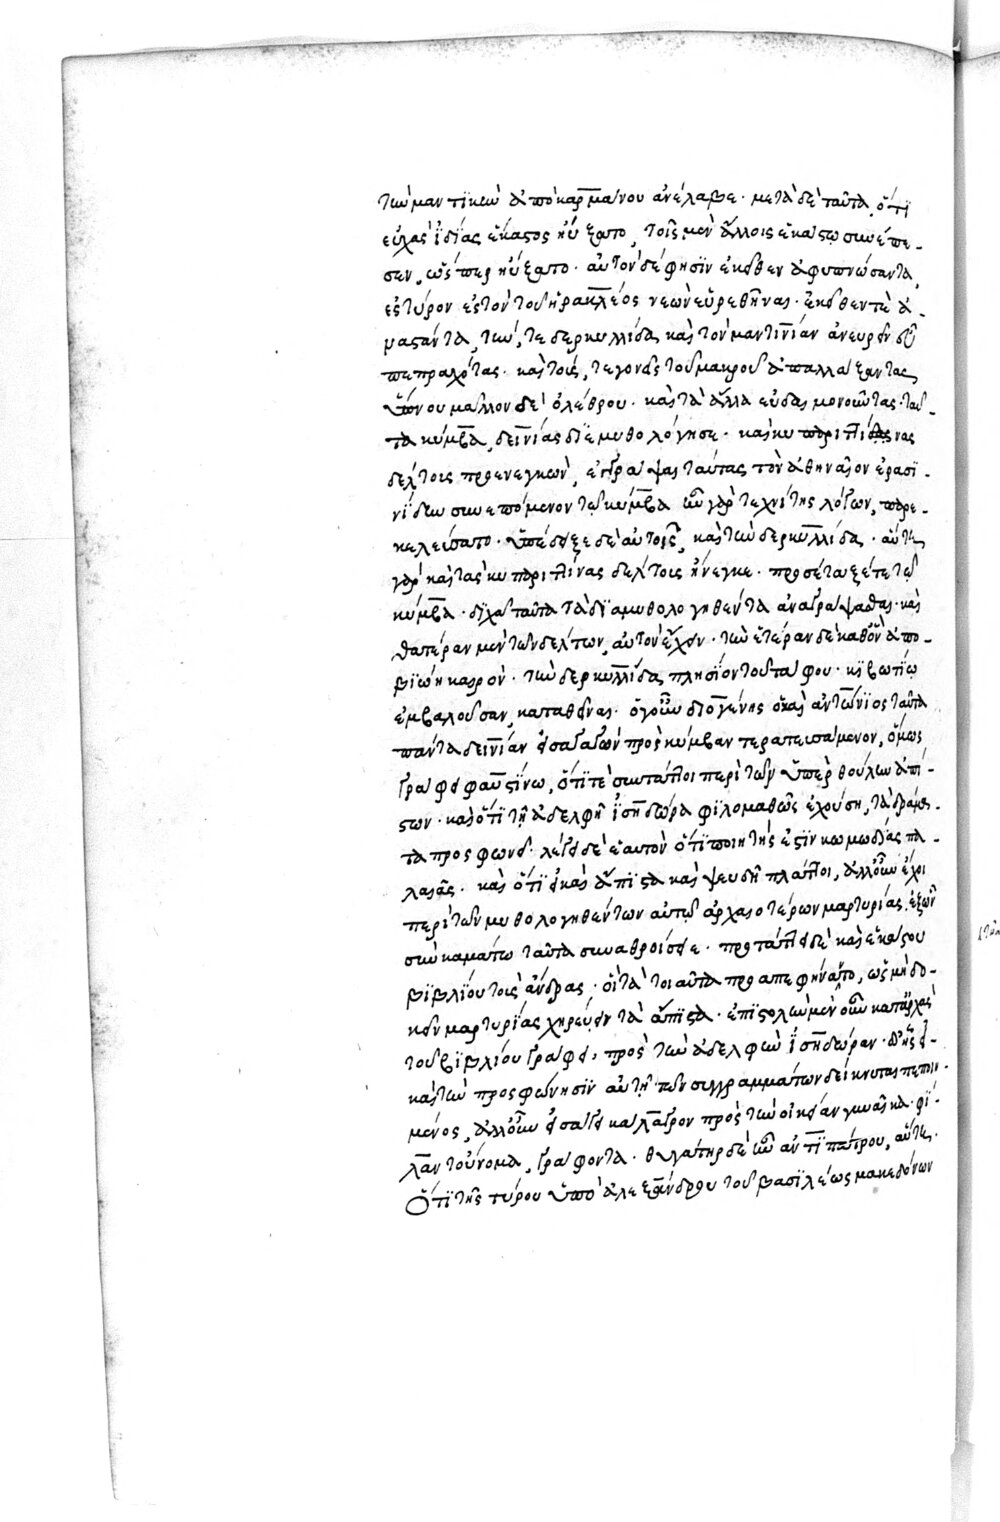 τὴν μαντικὴν ἀπὸ καρμάνου ἀνέλαβε· μετὰ δὲ ταῦτα, ὅτι
εὐχὰς ἰδίας ἕκαστος ηὔξατο, τοῖς μὲν ἄλλοις ἑκάστω συνέπε-
σεν, ὥσπερ ηὔξατο· αὐτὸν δέ φησιν ἐκεῖθεν ἀφυπνώσαντα,
εἰς τύρον εἰς τὸν τοῦ ἡρακλέος νεὼν εὑρεθῆναι· ἐκεῖθέν τε ἀ-
ναστάντα, τήν, τε δερκυλλίδα καὶ τὸν μαντινίαν ἀνευρεῖν εὖ
πεπραχότας· καὶ τούς, τε γονεῖς τοῦ μακροῦ ἀπαλλάξαντας
ὕπνου μᾶλλον δὲ ὀλέθρου· καὶ τὰ ἄλλα εὐδαιμονοῦντας· ταῦ-
τα κύμβα, δεινίας διεμυθολόγησε· καὶ κυπαριττίνας
δέλτους προενεγκὼν, ἐγγράψαι ταύτας τὸν ἀθηναῖον ἐρασι-
νίδην συνεπόμενον τῷ κύμβα ἦν γὰρ τεχνίτης λόγων, παρε-
κελεύσατο· ὑπέδειξε δὲ αὐτοῖς, καὶ τὴν δερκυλλίδα· αὕτη
γὰρ καὶ τὰς κυπαριττίνας δέλτους ἤνεγκε· προσέταξέ τε τῷ
κύμβα· δίχα ταῦτα τὰ διαμυθολογηθέντα ἀναγράψασθαι· καὶ
θατέραν μὲν τῶν δέλτων, αὐτὸν ἔχειν· τὴν ἑτέραν δὲ καθ' ὃν ἀπο-
βιώη καιρὸν· τὴν δερκυλλίδα πλησίον τοῦ τάφου· κιβωτίῳ
ἐμβαλοῦσαν, καταθεῖναι· ὁ γοῦν διογένης ὁ καὶ ἀντώνιος ταῦτα
πάντα δεινίαν εἰσαγαγὼν πρὸς κύμβαν τερατευσάμενον, ὅμως
γράφει φαυστίνω, ὅτι τε συντάττοι περὶ τῶν ὑπὲρ θούλην ἀπί-
στων· καὶ ὅτι τῇ ἀδελφῇ ἰσηδώρα φιλομαθῶς ἐχούση, τὰ δράμα-
τα προσφωνεῖ· λέγει δὲ ἑαυτὸν ὅτι ποιητής ἐστιν κωμωδίας πα-
λαιᾶς· καὶ ὅτι εἰ καὶ ἄπιστα καὶ ψευδῆ πλάττοι, ἀλλ' οὖν ἔχει
περὶ τῶν μυθολογηθέντων αὐτῷ ἀρχαιοτέρων μαρτυρίας, ἐξ ὧν
σὺν καμάτω ταῦτα συναθροίσειε· προτάττει δὲ καὶ ἑκάστου
βιβλίου τοὺς ἄνδρας· οἳ τὰ τοιαῦτα προαπεφήναντο, ὡς μὴ δο-
κεῖν μαρτυρίας χηρεύειν τὰ ἄπιστα· ἐπιστολὴν μὲν οὖν κατ' ἀρχὰς
τοῦ βιβλίου γράφει, πρὸς τὴν ἀδελφὴν ἰσηδώραν· δι' ἧς εἰ-
καὶ τὴν προσφώνησιν αὐτῇ τῶν συγγραμμάτων δείκνυται πεποιη-
μένος, ἀλλ' οὖν εἰσάγει καὶ βάλαγρον πρὸς τὴν οἰκείαν γυναῖκα· φί-
λαν τοὔνομα, γράφοντα· θυγάτηρ δὲ ἦν ἀντιπάτρου, αὕτη.
Ὅτι τῆς τύρου ὑπὸ ἀλεξάνδρου τοῦ βασιλέως μακεδόνων